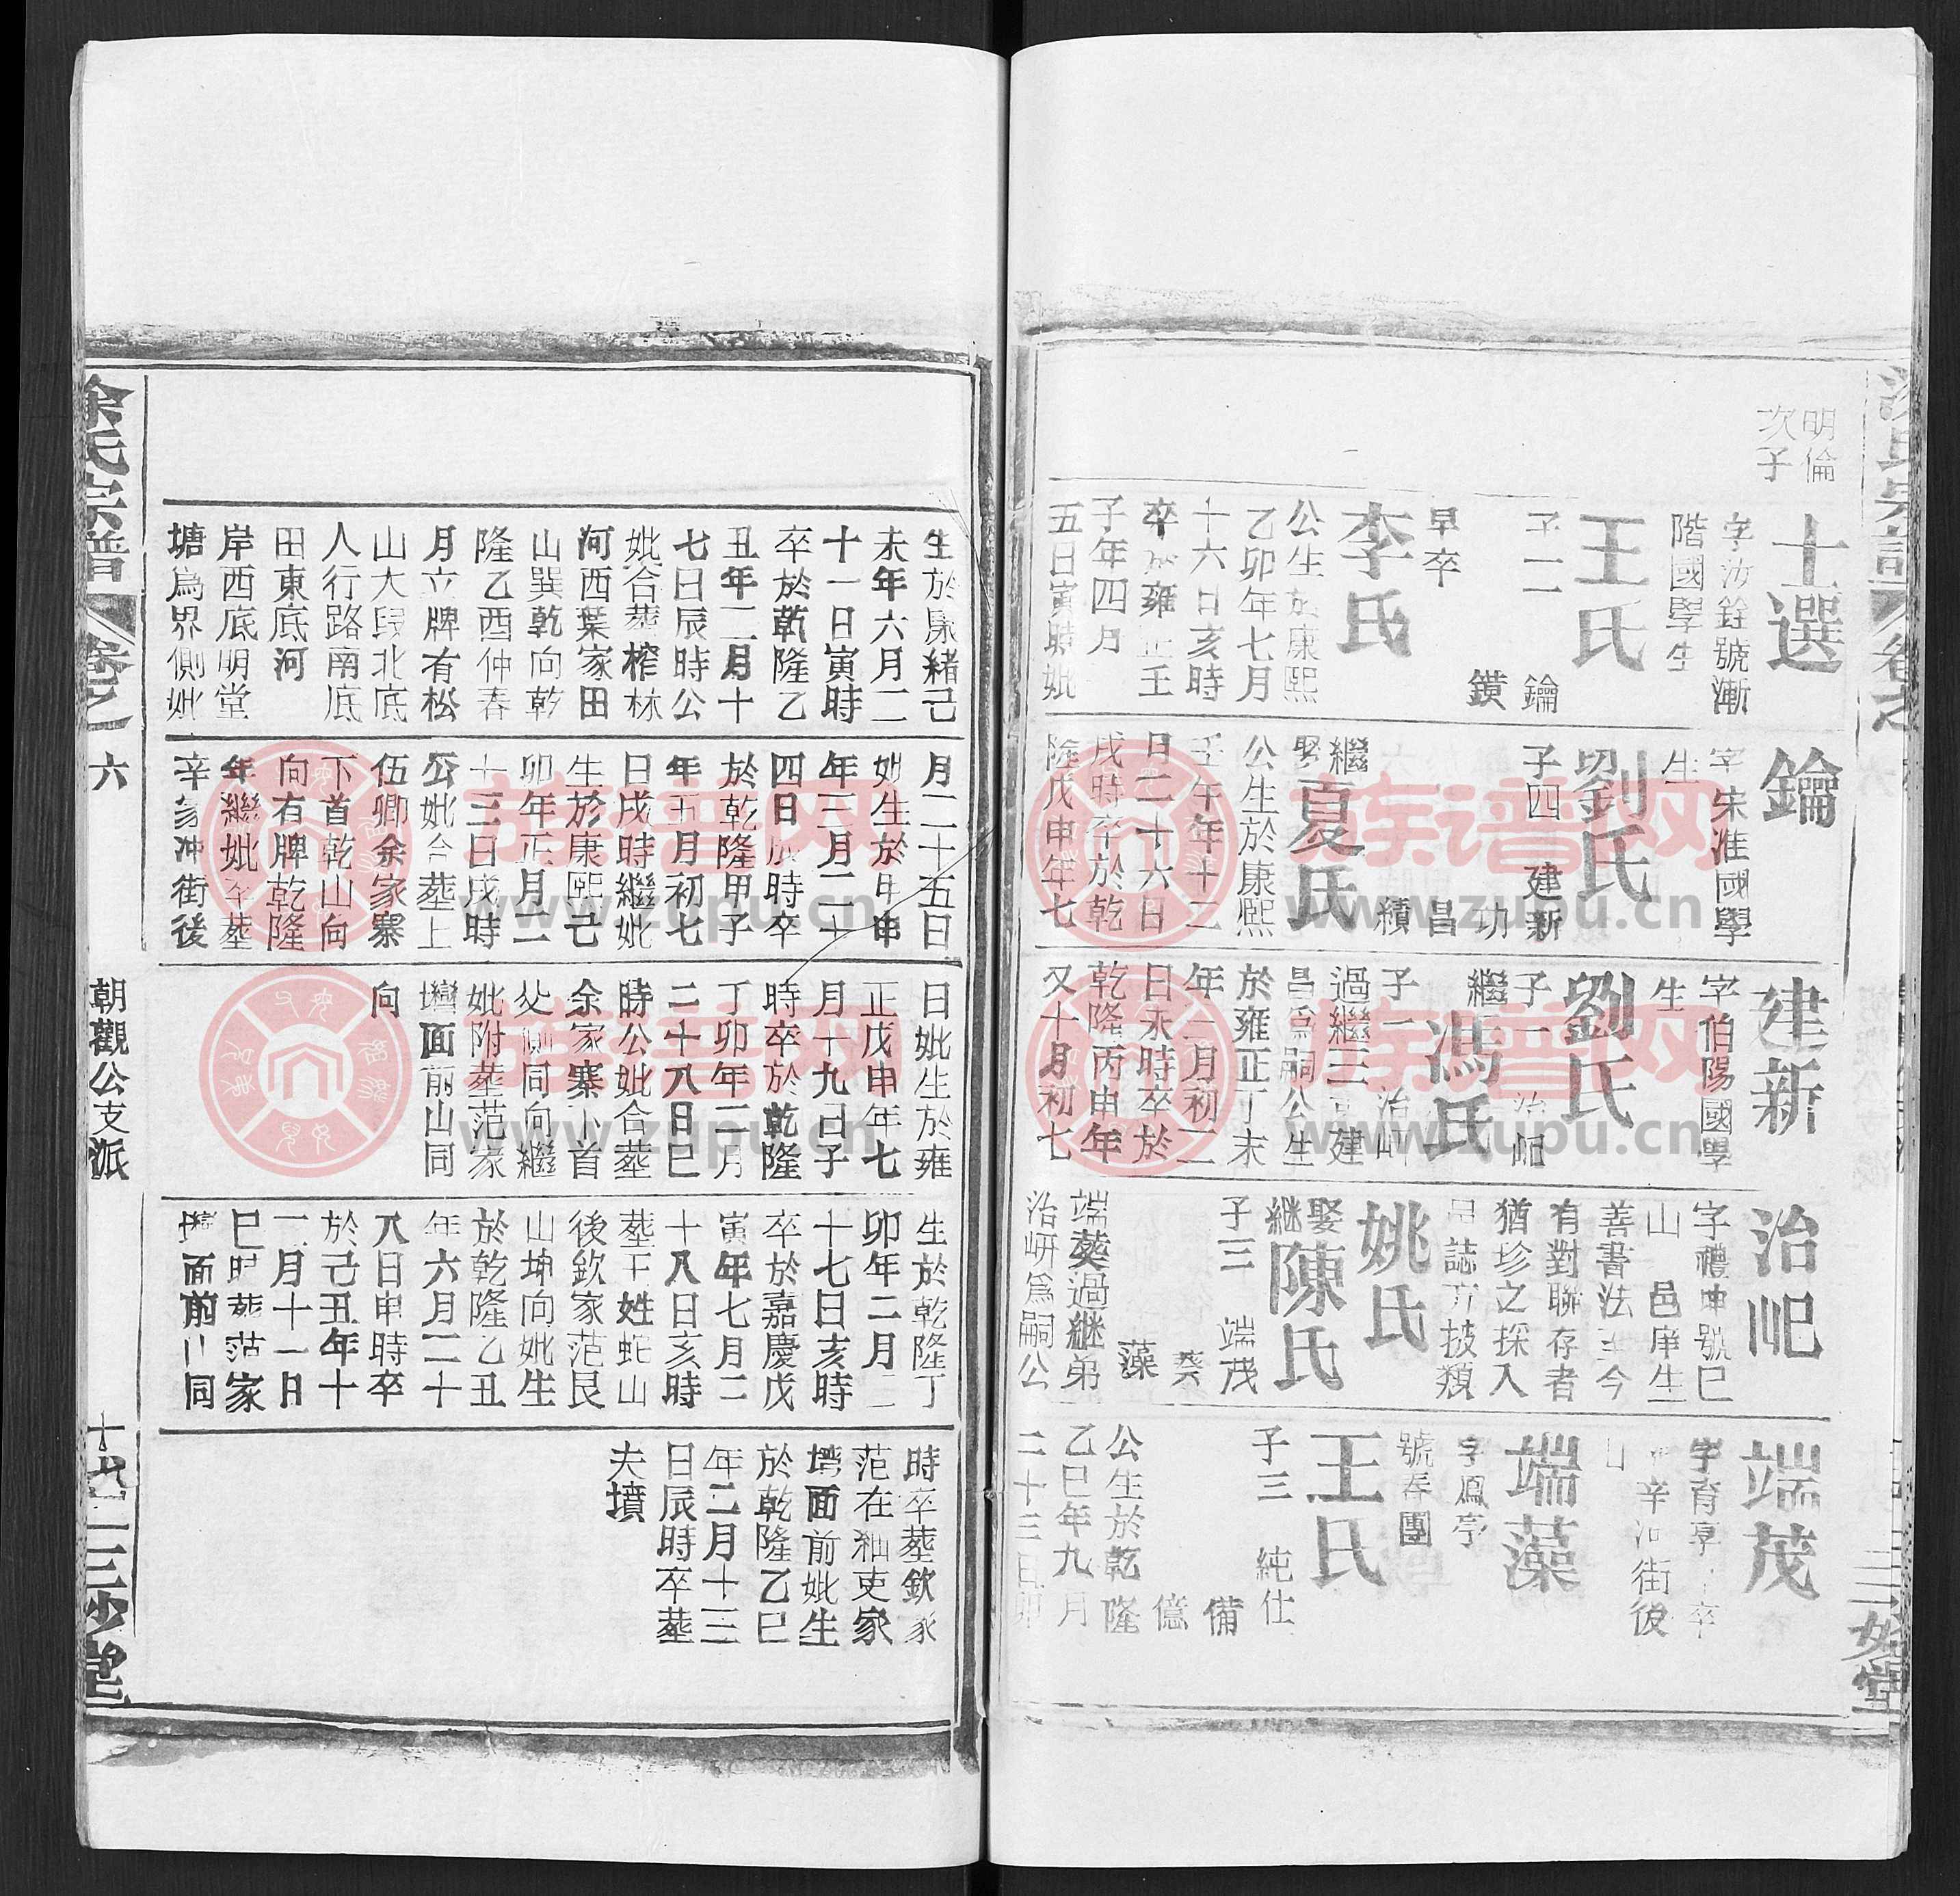 明倫
次子
士選
字汝銓號漸
階國學生
王氏
子二 鑰
鐄
早卒
李氏
公生於康熙
乙卯年七月
十六日亥時
卒於雍正壬
子年四月
五日寅時妣
鑰
字宋准國學
生
劉氏
子四 建新
功
昌
績
繼娶
夏氏
公生於康熙
壬午年十二
月二十六日
戌時卒於乾
隆戊申年七
建新
字伯陽國學
生
劉氏
子一 治屺
繼
馮氏
子一 治岍
過繼三 建
昌爲嗣公生
於雍正丁未
年二月初二
日永時卒於
乾隆丙申年
又十月初七
治屺
字禮坤號巳
山 邑庠生
善書法至今
有對聯存者
猶珍之採入
邑誌方技類
姚氏
繼娶
陳氏
子三 端茂
葵
藻
端葵過継弟
治岍爲嗣公
端茂
字育亭 卒
辛冲街後
山
端藻
字鳳亭
號春圃
王氏
子三 純仕
備
億
公生於乾隆
乙巳年九月
二十三日卯
生於康緒己
未年六月二
十一日寅時
卒於乾隆乙
丑年二月十
七日辰時公
妣合塟榨林
河西葉家田
山巽乾向乾
隆乙酉仲春
月立牌有松
山大叚北底
人行路南底
田東底河
岸西底明堂
塘爲界側妣
月二十五日
妣生於甲申
年三月二十
四日辰時卒
於乾隆甲子
年五月初七
日戌時繼妣
生於康熙己
卯年正月二
十三日戌時
公妣合塟上
伍卿余家寨
下首乾山向
向有牌乾隆
年繼妣卒塟
辛家冲街後
日妣生於雍
正戊申年七
月十九日子
時卒於乾隆
丁卯年二月
二十八日巳
時公妣合塟
余家寨下首
父側同向繼
妣附塟范家
塆面前山同
向
生於乾隆丁
卯年二月二
十七日亥時
卒於嘉慶戊
寅年七月二
十八日亥時
塟王姓蛇山
後欽家范艮
山坤向妣生
於乾隆乙丑
年六月二十
八日申時卒
於己丑年十
二月十一日
巳時塟范家
塆面前山同
時卒塟欽家
范在神吏家
塆面前妣生
於乾隆乙巳
年二月十三
日辰時卒塟
夫墳
余氏宗譜
卷之 六
朝觀公支派
十九
三妙堂